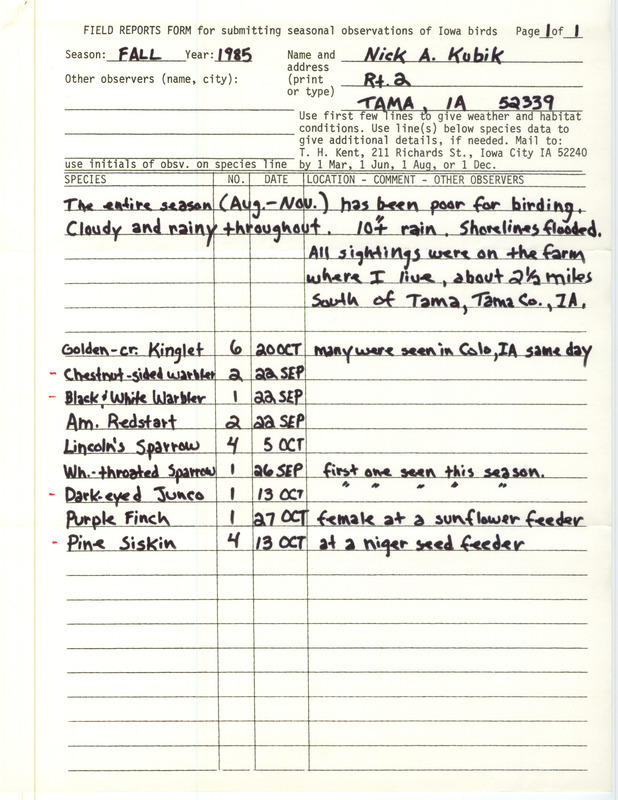 FIELD REPORTS FORM for submitting seasonal observations of Iowa birds Page 1 of 1
Season: FALL Year: 1985 Name and address (print or type) Nick A. Kubik
Other observers (name, city): Rt. 2
TAMA, IA 52339
Use first few lines to give weather and habitat
conditions. Use line(s) below species data to
give additional details, if needed. Mail to:
T. H. Kent, 211 Richards St., Iowa City IA 52240
use initials of obsv. on species line by 1 Mar, 1 Jun, 1 Aug, or 1 Dec.
SPECIES NO. DATE LOCATION - COMMENT - OTHER OBSERVERS
The entire season (Aug.-Nov.) has been poor for birding.
Cloudy and rainy throughout. 10"+ rain. Shorelines flooded.
All sightings were on the farm
where I live, about 2½ miles
South of Tama, Tama Co., IA.
Golden-cr. Kinglet 6 20 OCT many were seen in Colo, IA same day
- Chestnut-sided warbler 2 22 SEP
- Black & White Warbler 1 22 SEP
Am. Redstart 2 22 SEP
Lincoln's Sparrow 4 5 OCT
Wh.-throated Sparrow 1 26 SEP first one seen this season.
- Dark-eyed Junco 1 13 OCT " " " " "
Purple Finch 1 27 OCT female at a sunflower feeder
- Pine Siskin 4 13 OCT at a niger seed feeder